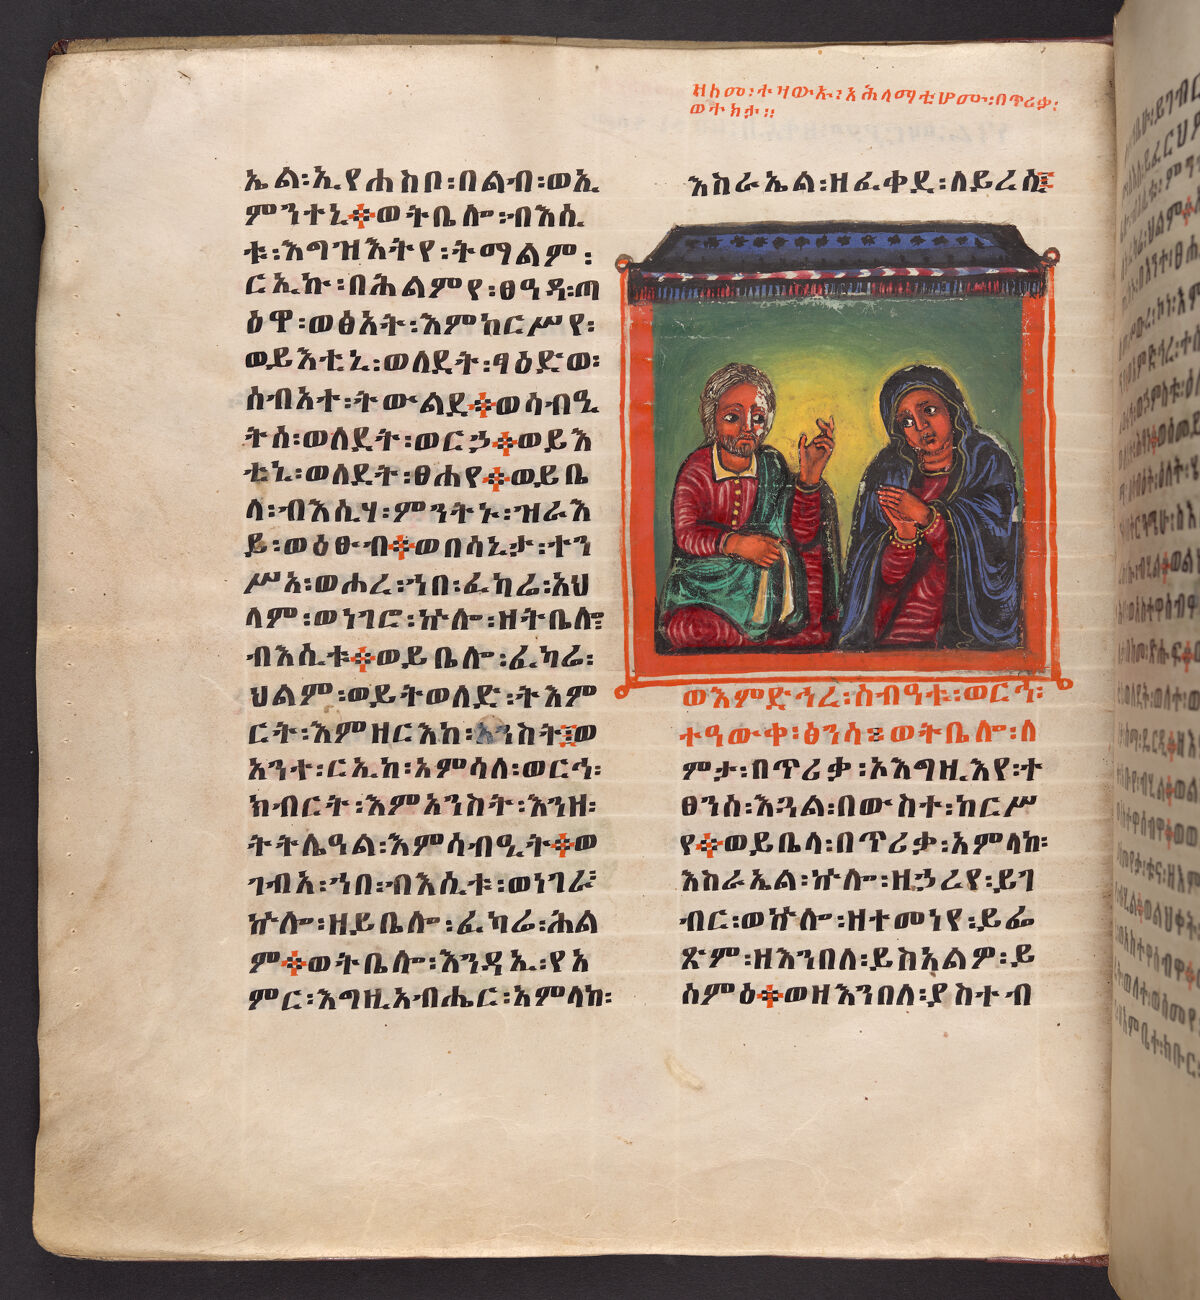 ዘከመ፡ተዛውኡ፡አሕላማቲሆሙ፡በጥሪቃ፡
ወትክታ።
ኤል፡ኢየሐስቦ፡በልብ፡ወኢ
ምንተኒ፨ወትቤሎ፡ብእሲ
ቱ፡እግዝእትየ፡ትማልም፡
ርኢኩ፡በሕልምየ፡ፀዓዳ፡ጣ
ዕዋ፡ወፅአት፡እምከርሥየ፡
ወይእቲኒ፡ወለደት፡ፃዕድወ፡
ስብአተ፡ትውልደ፨ወሳብዒ
ትሰ፡ወለደት፡ወርኃ፨ወይእ
ቲኒ፡ወለደት፡ፀሐየ፨ወይቤ
ላ፡ብእሲሃ፡ምንትኑ፡ዝራእ
ይ፡ወዕፁብ፨ወበሳኒታ፡ተን
ሥአ፡ወሐረ፡ኀበ፡ፈካሬ፡አህ
ላም፡ወነገሮ፡ኵሎ፡ዘትቤሎ፡
ብእሲቱ፨ወይቤሎ፡ፈካሬ፡
ህልም፡ወይትወለድ፡ትእም
ርት፡እምዘርእከ፡አንስት፨ወ
አንተ፡ርኢከ፡አምሳለ፡ወርኅ፡
ክብርት፡እምአንስት፡እንዘ፡
ትትሌዓል፡እምሳብዒት፨ወ
ገብአ፡ኀበ፡ብእሲቱ፡ወነገራ፡
ኵሎ፡ዘይቤሎ፡ፈካሬ፡ሕል
ም፨ወትቤሎ፡እንዳኢ፡የአ
ምር፡እግዚአብሔር፡አምላከ፡
እስራኤል፡ዘፈቀደ፡ለይረሲ፨
ወእምድኅረ፡ስብዓቱ፡ወርኅ፡
ተዓውቀ፡ፅንሳ፨ወትቤሎ፡ለ
ምታ፡በጥሪቃ፡ኦእግዚእየ፡ተ
ፀንሰ፡እጓል፡በውስተ፡ከርሥ
የ፨ወይቤላ፡በጥሪቃ፡አምላከ፡
እስራኤል፡ኵሎ፡ዘኃረየ፡ይገ
ብር፡ወኵሎ፡ዘተመነየ፡ይፌ
ጽም፡ዘእንበለ፡ይስአልዎ፡ይ
ሰምዕ፨ወዘእንበለ፡ያስተብ